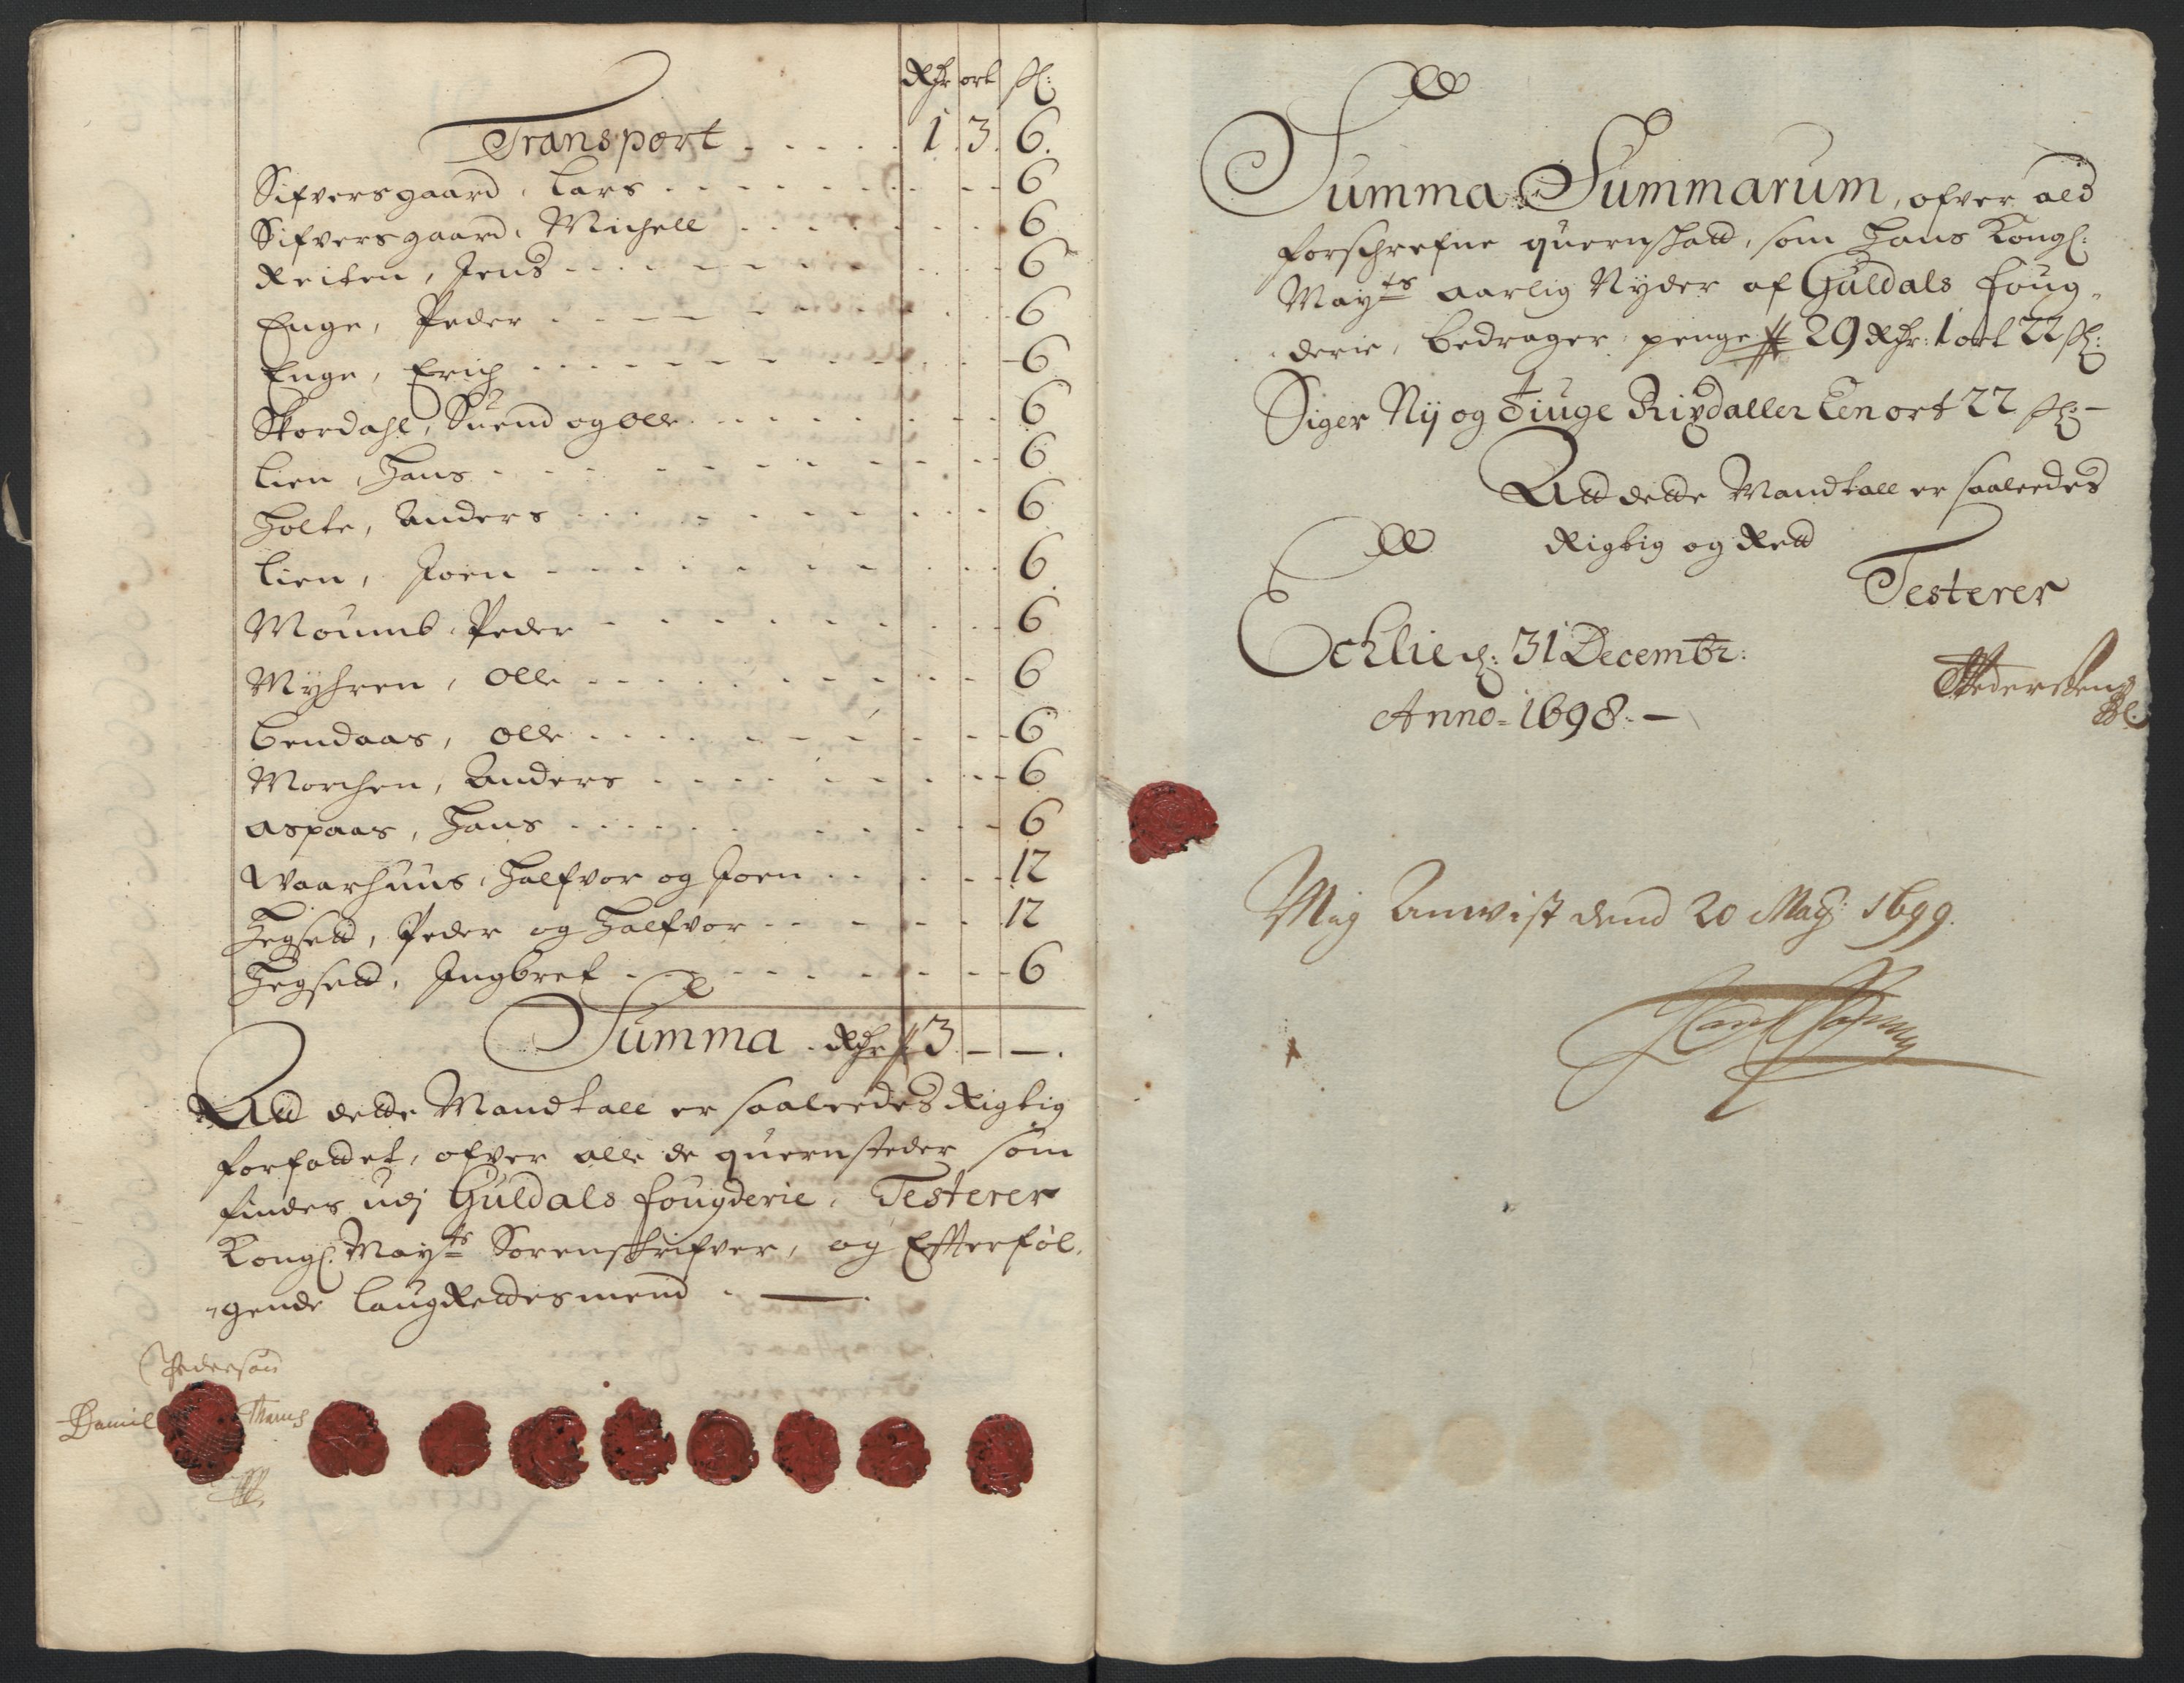 Rdr ort sl:
Transport - - - - - 1. 3. 6.
Sifversgaard, Lars - - - - - - 6
Sifversgaard, Michell - - - - - 6
Reiten, Jens - - - - - - 6
Enge, Peder - - - - - - 6
Enge, Erich - - - - - - 6
Skordahl, Suend og Olle - - - - - 6
Lien, Hans - - - - - - 6
Holte, Anders - - - - - - 6
Lien, Joen - - - - - - 6
Moumb, Peder - - - - - - 6
Myhren, Olle - - - - - - 6
Bendaas, Olle - - - - - - 6
Morchen, Anders - - - - - - 6
Aspaas, Hans - - - - - - 6
Waarhuus, Halfvor og Joen - - - - 12
Hegsett, Peder og Halfvor - - - - 12
Hegsett, Ingbret - - - - - - 6
Summa. Rdr 3 - -.
Att dette Mandtall er saaleedes Rigtig
forfattet, ofver alle de quernsteder som
findes udj Guldals fougderie, Testerer
Kongl: Mayts Sorenskrifver, og Efterføl-
gende LaugRettesmend. —
Pedersøn
Daniel Thams
Summa Summarum, ofver ald
forschrefne quernskatt, som Hans Kongl:
Mayts aarlig Nyder af Guldals foug-
derie, bedrager penge 29 Rdr: 1 ort 22 sl:
Siger Nij og Tiuge Rixdaller Een ort 22 sl: -
Att dette Mandtall er saaleedes
Rigtig og Rett
Testerer
Echlie d: 31 Decembr:
Anno = 1698. -
Mig Anvist dend 20 Maij: 1699.